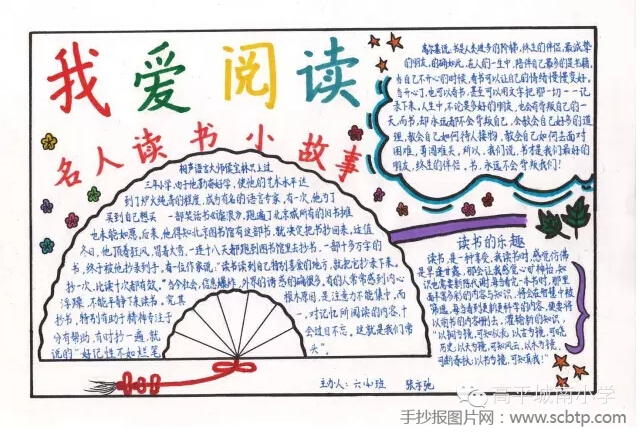 我爱阅读
名人读书小故事
相声语言大师侯宝林只上过
三年小学,由于他勤奋好学,使他的艺术水平达
到了炉火纯青的程度,成为有名的语言专家,有一次,他为了
买到自己想买一部笑话书
跑遍了北京城所有的旧书摊
也未能如愿,后来,他得知北京图书馆有这部书,就决定把书抄回来,这值
冬日,他顶着狂风,冒着大雪,一连十八天都跑到图书馆里去抄书,一部十多万字的
书,终于被他抄来到手,有一位作家说,“读书读到自己特别喜爱的地方,就把它抄来下来,
抄一次,比读十次都有效,”当今社会,信息爆炸,外界的诱惑的确很多,有的人常常感到内心
浮躁,不能平静下来读书,究其
根本原因,是注意力不能集中,而
抄书,特别有助于精神专注于
一,对记忆所阅读的内容,十
分有帮助,有时抄一遍,就
会过目不忘,这就是我们常
说的“好记性不如烂笔
头”.
高尔基说,书是人类进步的阶梯,终生的伴侣,最诚挚
的朋友,的确如此,在人的一生中,陪伴自己最多的是书籍,
当自己不开心的时候,看书可以让自己的情绪慢慢变好,
当开心了,也可以看书,甚至可以用文字把那一切一一记
录下来,人生中,不论是多好的朋友,也会有背叛自己的一
天,而书,却永远都不会背叛自己,会教会自己好多的道
理,教会自己如何待人接物,教会自己如何去面对
困难,勇闯难关,所以,我们说,书才是我们最好的
朋友,终生的伴侣,书,永远不会背叛我们!
读书的乐趣
读书,是一种享受,我读书时,感觉仿佛
“以铜为镜,可知以衣,以古为镜,可晓
历史,以天为镜,可知风云,以水为镜,
可断春秋,以书为镜,可知真我!”
主办人:六 班
高平城南小学
手抄报图片网:www.scbtp.com